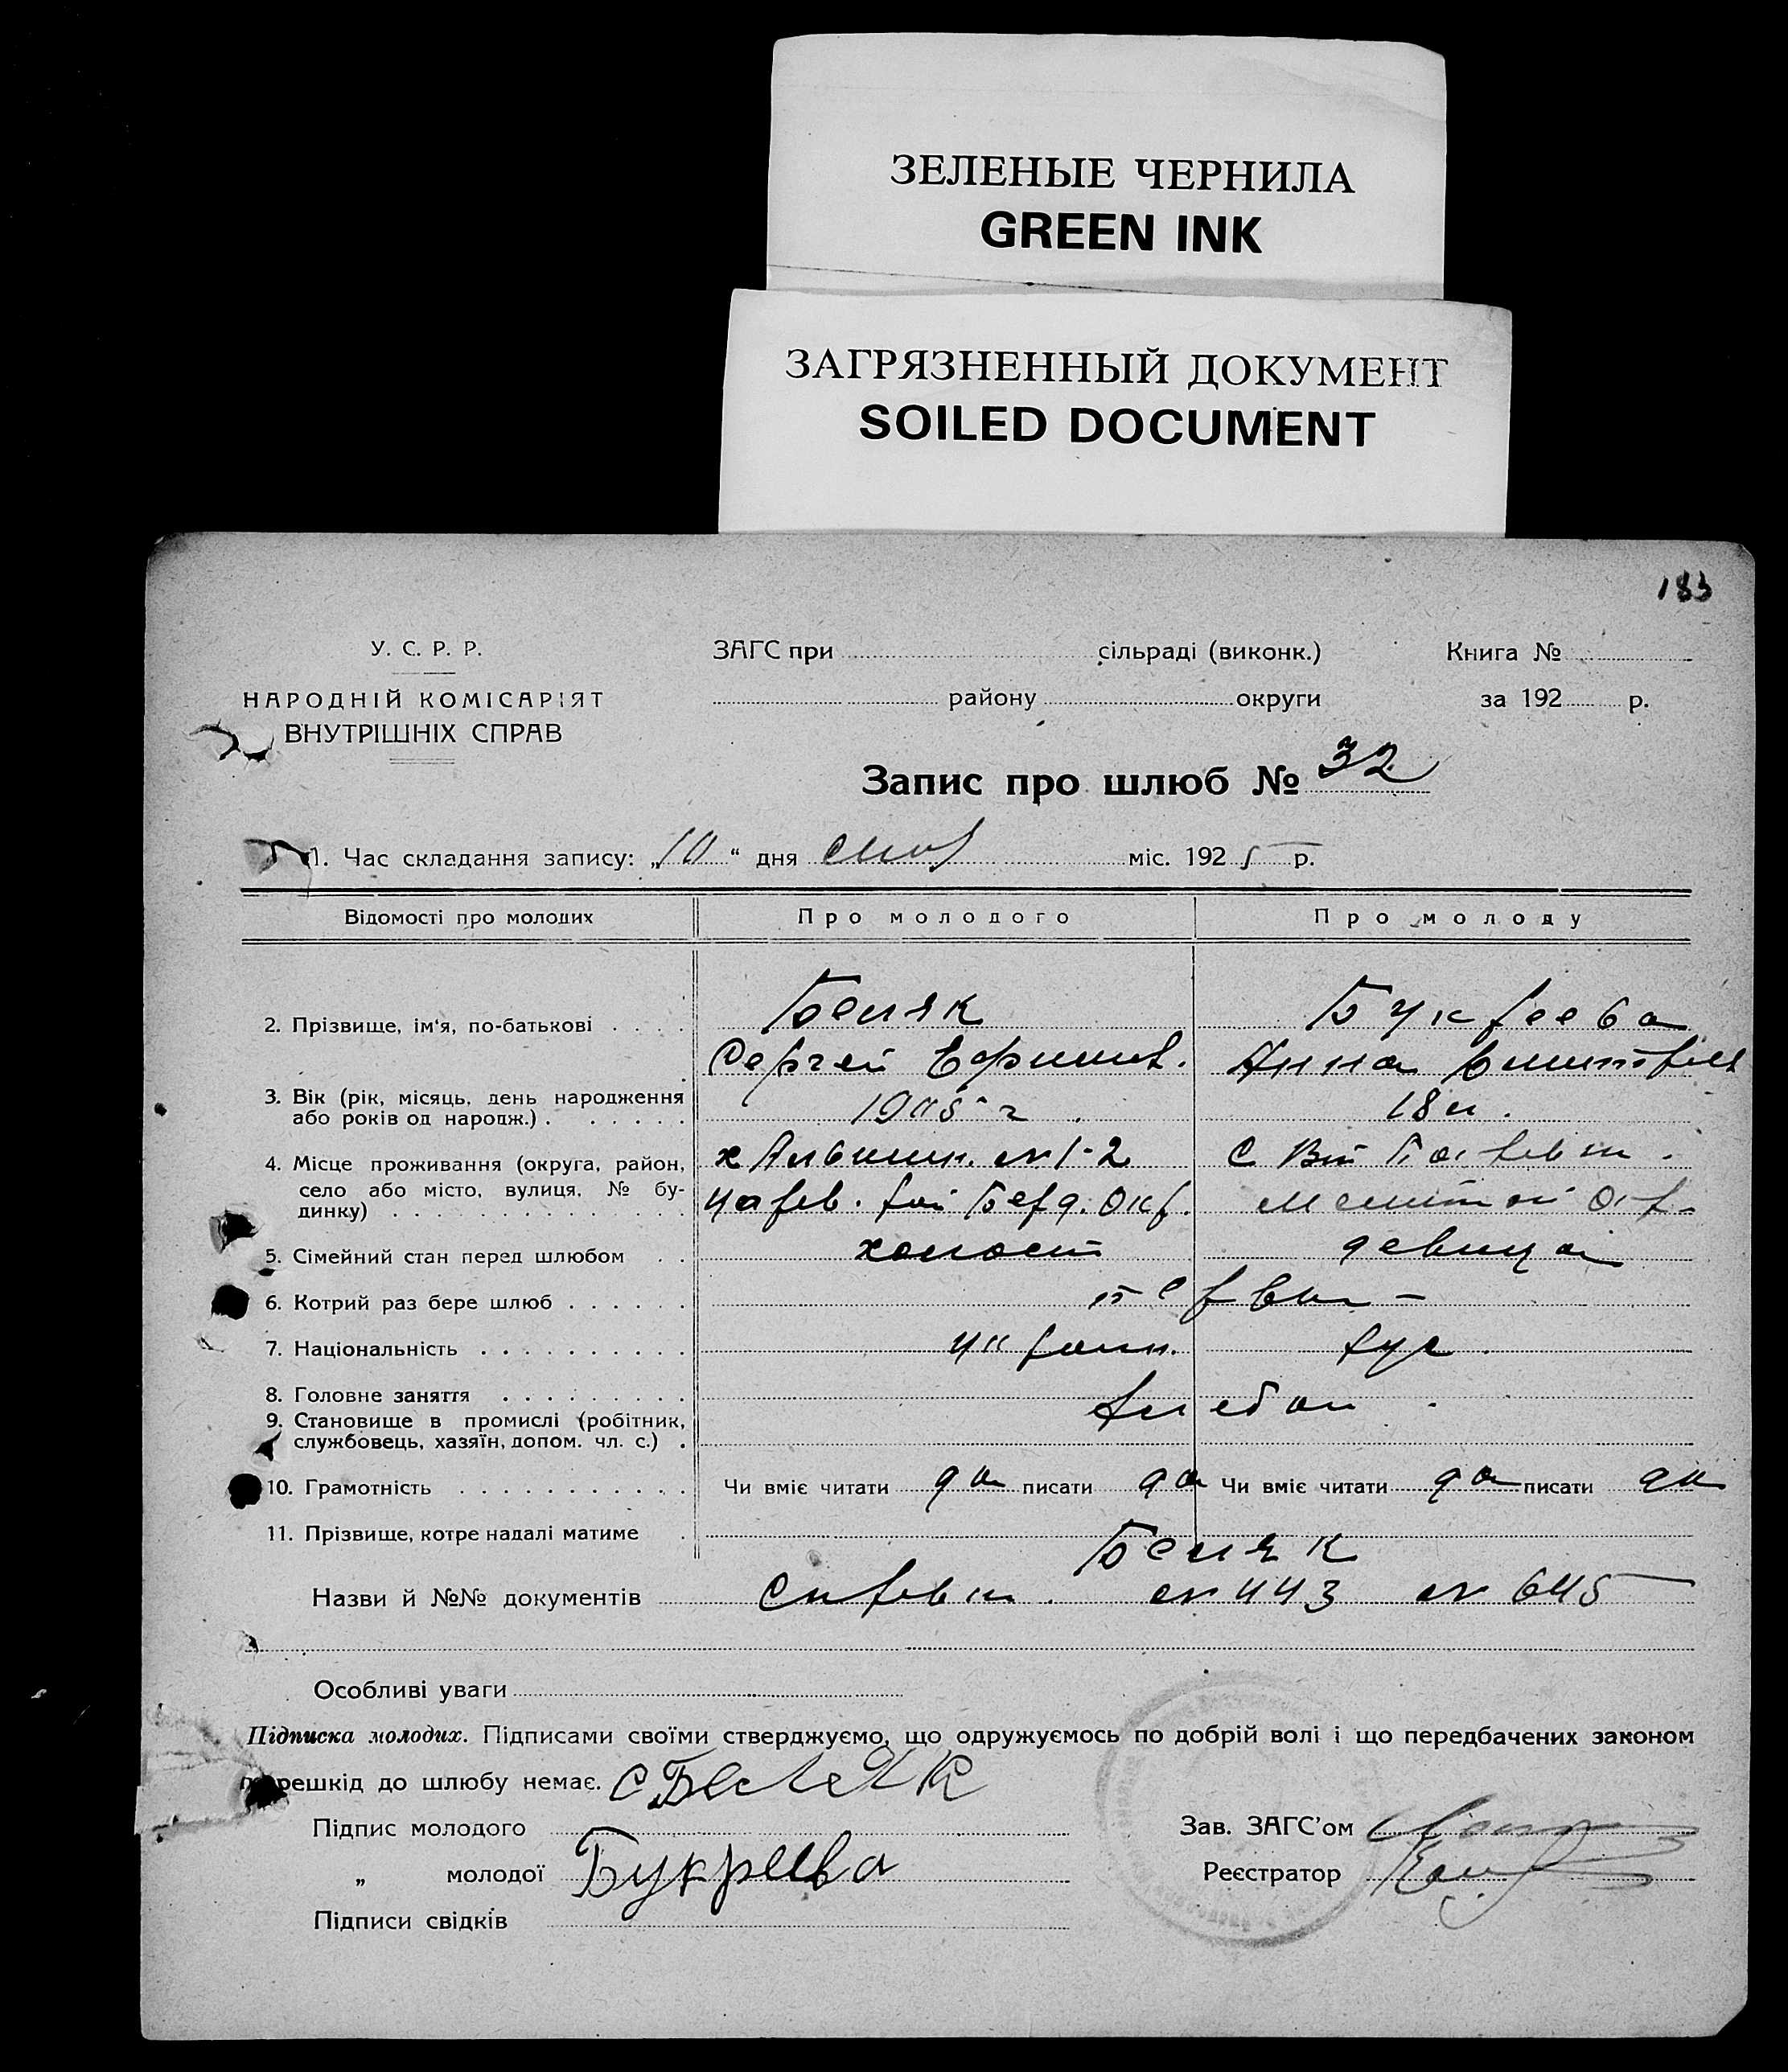 ЗЕЛЕНЫЕ ЧЕРНИЛА
GREEN INK
ЗАГРЯЗНЕННЫЙ ДОКУМЕНТ
SOILED DOCUMENT
183
У. С. Р. Р.
НАРОДНІЙ КОМІСАРІЯТ
ВНУТРІШНІХ СПРАВ
ЗАГС при сільраді (виконк.)
району округи
Книга №
за 192 р.
Запис про шлюб № 32
1. Час складання запису: „10“ дня міс. 1925 р.
Відомості про молодих Про молодого Про молоду
2. Прізвище, ім'я, по-батькові Беляк Букреева
Сергей Ефимов. Анна
3. Вік (рік, місяць, день народження 1905 г. 18 л.
або років од народж.)
4. Місце проживання (округа, район, х № 1-2 с
село або місто, вулиця, № бу- Царев. рай Берд. Окр. Мелитой Окр.
динку)
5. Сімейний стан перед шлюбом холост девица
6. Котрий раз бере шлюб первый
7. Національність украин. рус.
8. Головне заняття хлебоп.
9. Становище в промислі (робітник,
службовець, хазяїн, допом. чл. с.)
10. Грамотність Чи вміє читати да писати да Чи вміє читати да писати да
11. Прізвище, котре надалі матиме Беляк
Назви й №№ документів № 443 № 645
Особливі уваги
Підписка молодих. Підписами своїми стверджуємо, що одружуємось по добрій волі і що передбачених законом
перешкід до шлюбу немає. С Беляк
Підпис молодого
„ молодої Букреева
Підписи свідків
Зав. ЗАГС'ом
Реєстратор